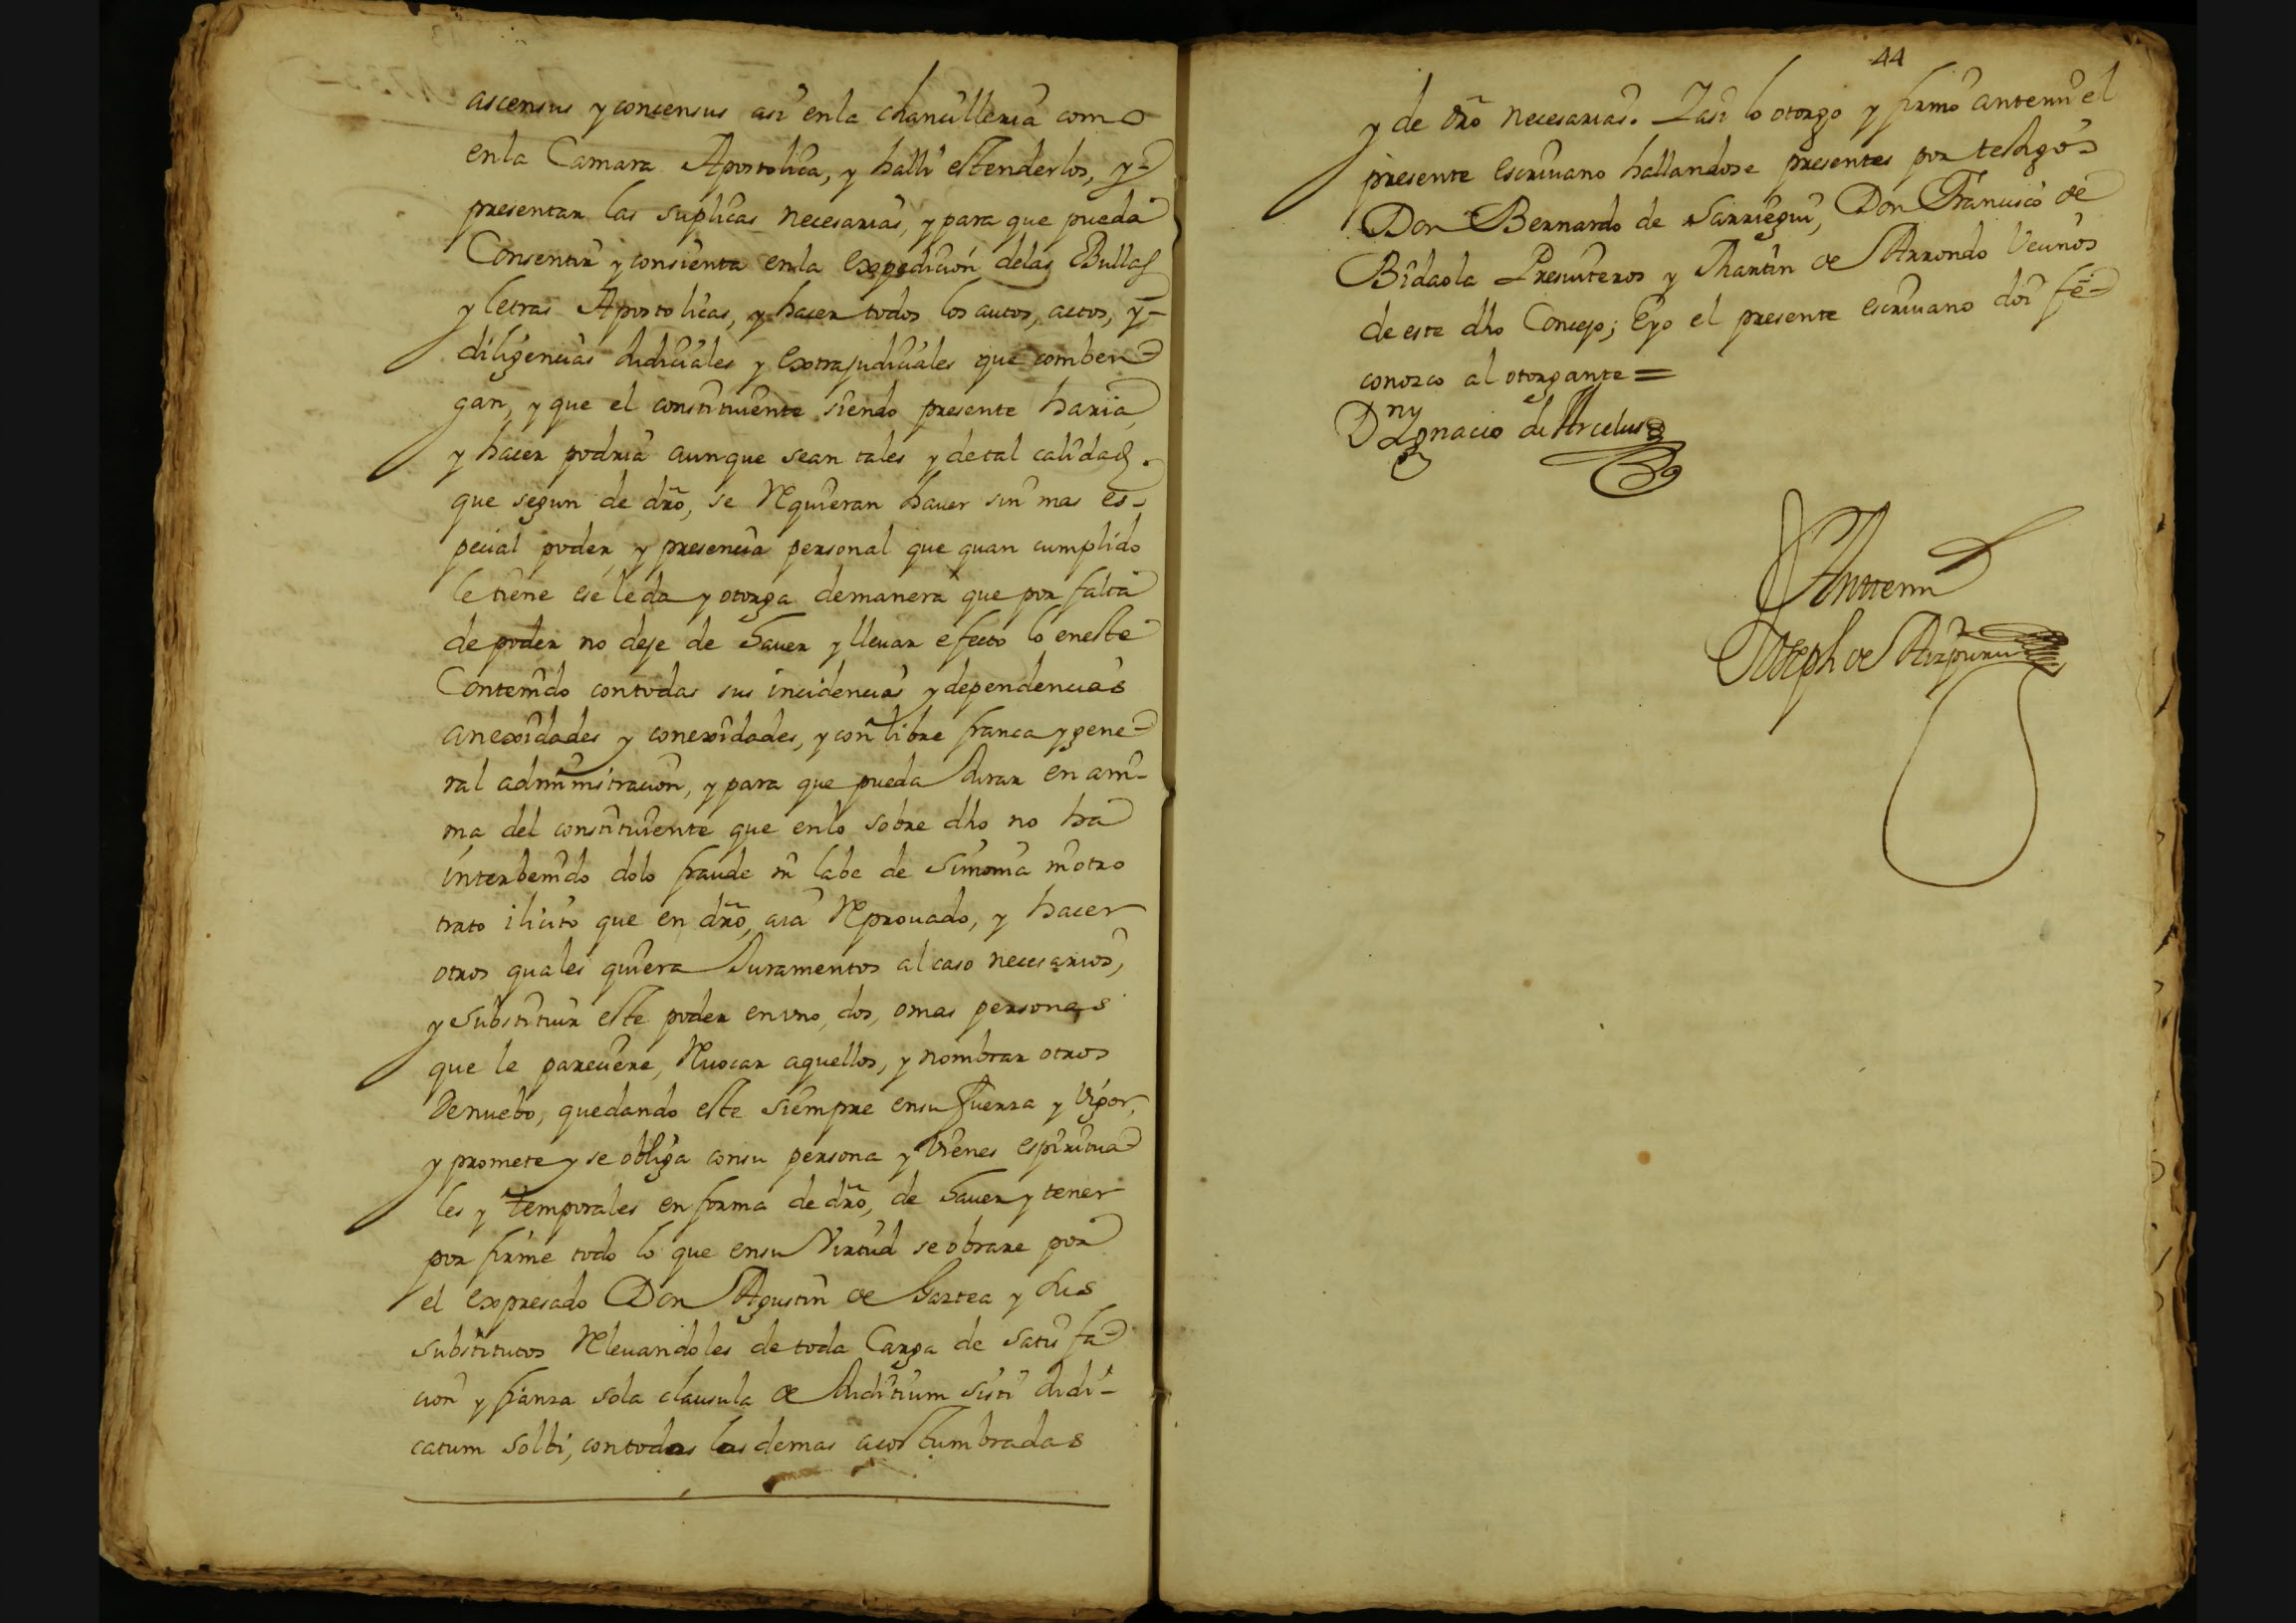 ascensus y concensus asi en la chancilleria como
en la Camara Apostolica, y halli estenderlos, y
presentar las suplicas necesarias, y para que pueda
Consentir y consienta en la expedición delas Bullas
y letras Apostolicas, y hacer todos los autos, actos, y
diligencias Judiciales y extrajudiciales que comben
gan, y que el constituiente siendo presente haria,
y hacer podria aunque sean tales y de tal calidad
que segun de dr̃o, se requieran haver sin mas es
pecial poder, y presencia personal que quan cumplido
le tiene ese le da y otorga demanera que por falta
de poder no deje de haver y llevar efecto lo eneste
Contenido contodas sus incidencias y dependencias
anexidades y conexidades, y con libre franca y gene
ral administracion, y para que pueda Jurar en ani-
ma del constituiente que enlo sobre dho no ha
interbenido dolo fraude ni labe de Simonia ni otro
trato ilicito que en dr̃o, aia reprouado, y hacer
otros quales quiera Juramentos al caso necesarios,
y Substituir este poder en vno, dos, o mas personas
que le pareciere, reuocar aquellos, y nombrar otros
de nuebo, quedando este siempre ensu fuerza y vigor,
y promete y se obliga consu persona y vienes espiritua
les y temporales en forma de dr̃o, de haver y tener
por firme todo lo que ensu Virtud se obrare por
el expresado Don Agustin de Gaztea y sus
substitutos releuandoles de toda Carga de satisfa
cion y fianza sola clausula de Judicium sisti Judi-
catum solbi, contodas las demas acostumbradas
44
y de dr̃o necesarias. Y asi lo otorgo y firmó antemi el
presente escriuano hallandose presentes por testigos
Don Bernardo de Sarriegui, Don Francisco de
Bidaola Presuiteros y Martin de Arrondo Vecinos
de este dho Concejo; E yo el presente escriuano doi fe
conozco al otorgante =
Dn Ygnacio de Arcelus
Anttemi
Joseph de Aizpuru